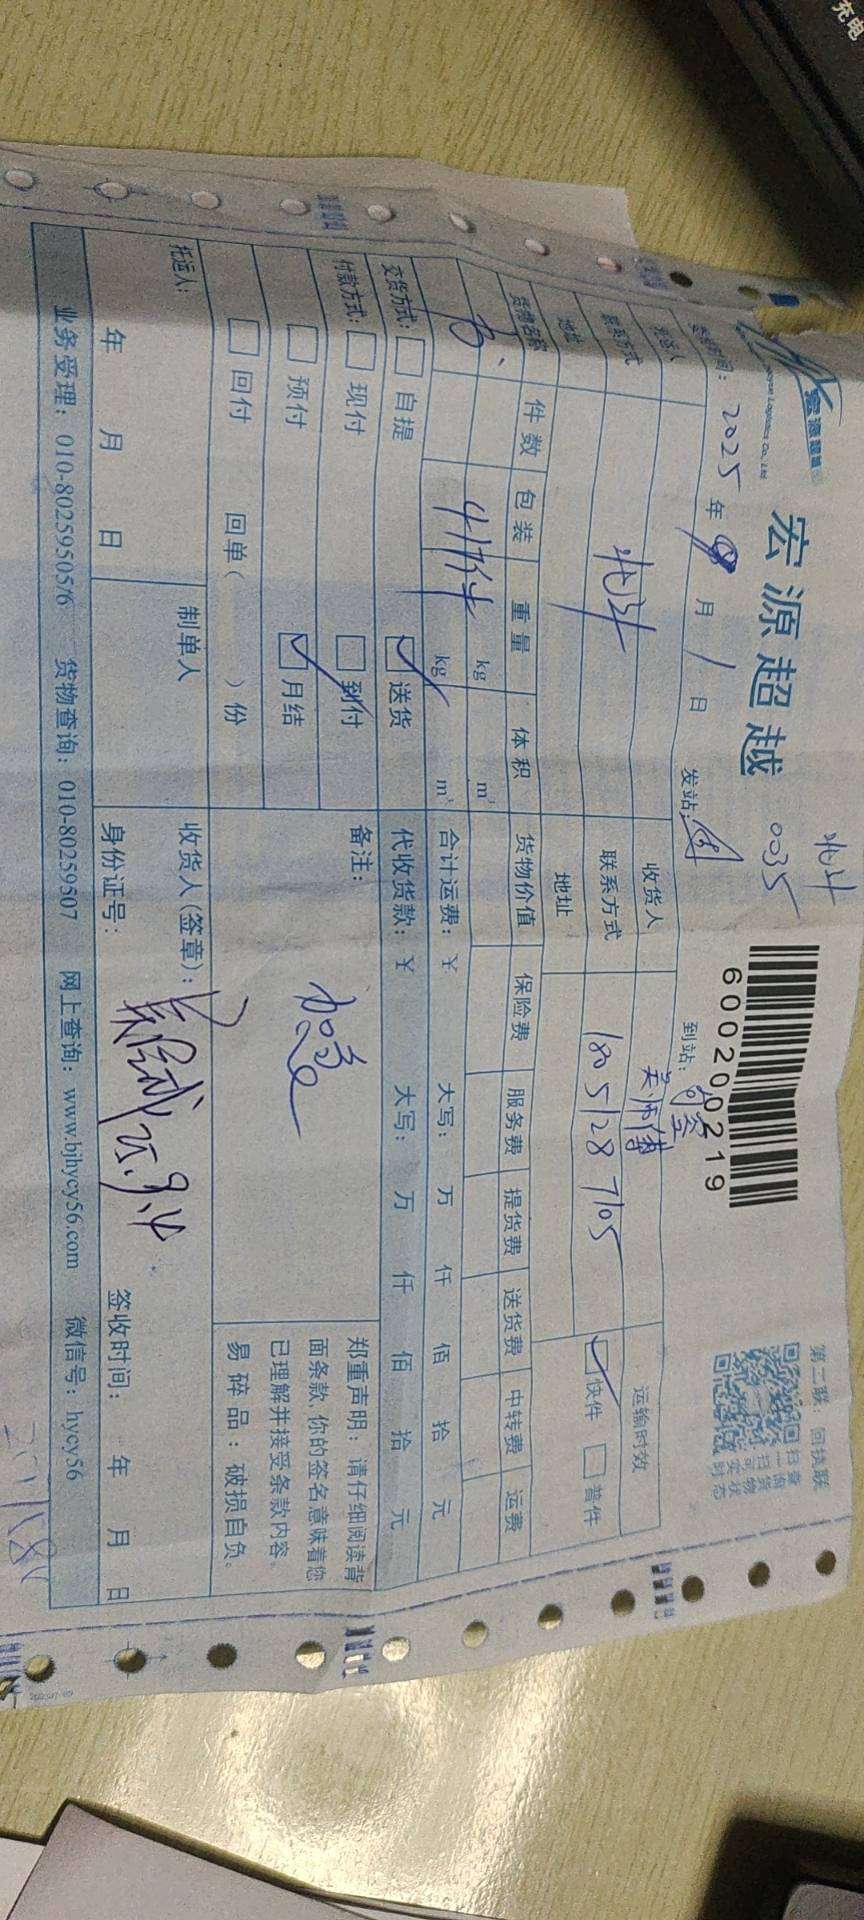 充电
北斗
宏源超越
0035
60020000219
第二联：回执联
扫一扫
查询货物
可实时状态
宏源超越
委托时间：2025年9月1日 发站： 到站：
托运人 收货人 吴师傅 运输时效
联系方式 北斗 联系方式 18051287105 快件 普件
地址 地址
货物名称 件数 包装 重量 体积 货物价值 保险费 服务费 提货费 送货费 中转费 运费
kg m³
417件 kg m³ 合计运费：￥ 大写： 万 仟 佰 拾 元
交货方式： 自提 送货 代收货款：￥ 大写： 万 仟 佰 拾 元
付款方式： 现付 到付 备注：
预付 月结 加急
回付 回单（ ）份
郑重声明：请仔细阅读背
面条款，你的签名意味着您
已理解并接受条款内容。
易碎品：破损自负。
托运人： 制单人 收货人(签章)：
年 月 日 身份证号： 签收时间： 年 月 日
业务受理：010-80259505/6 货物查询：010-80259507 网上查询：www.bjhycy56.com 微信号：hycy56